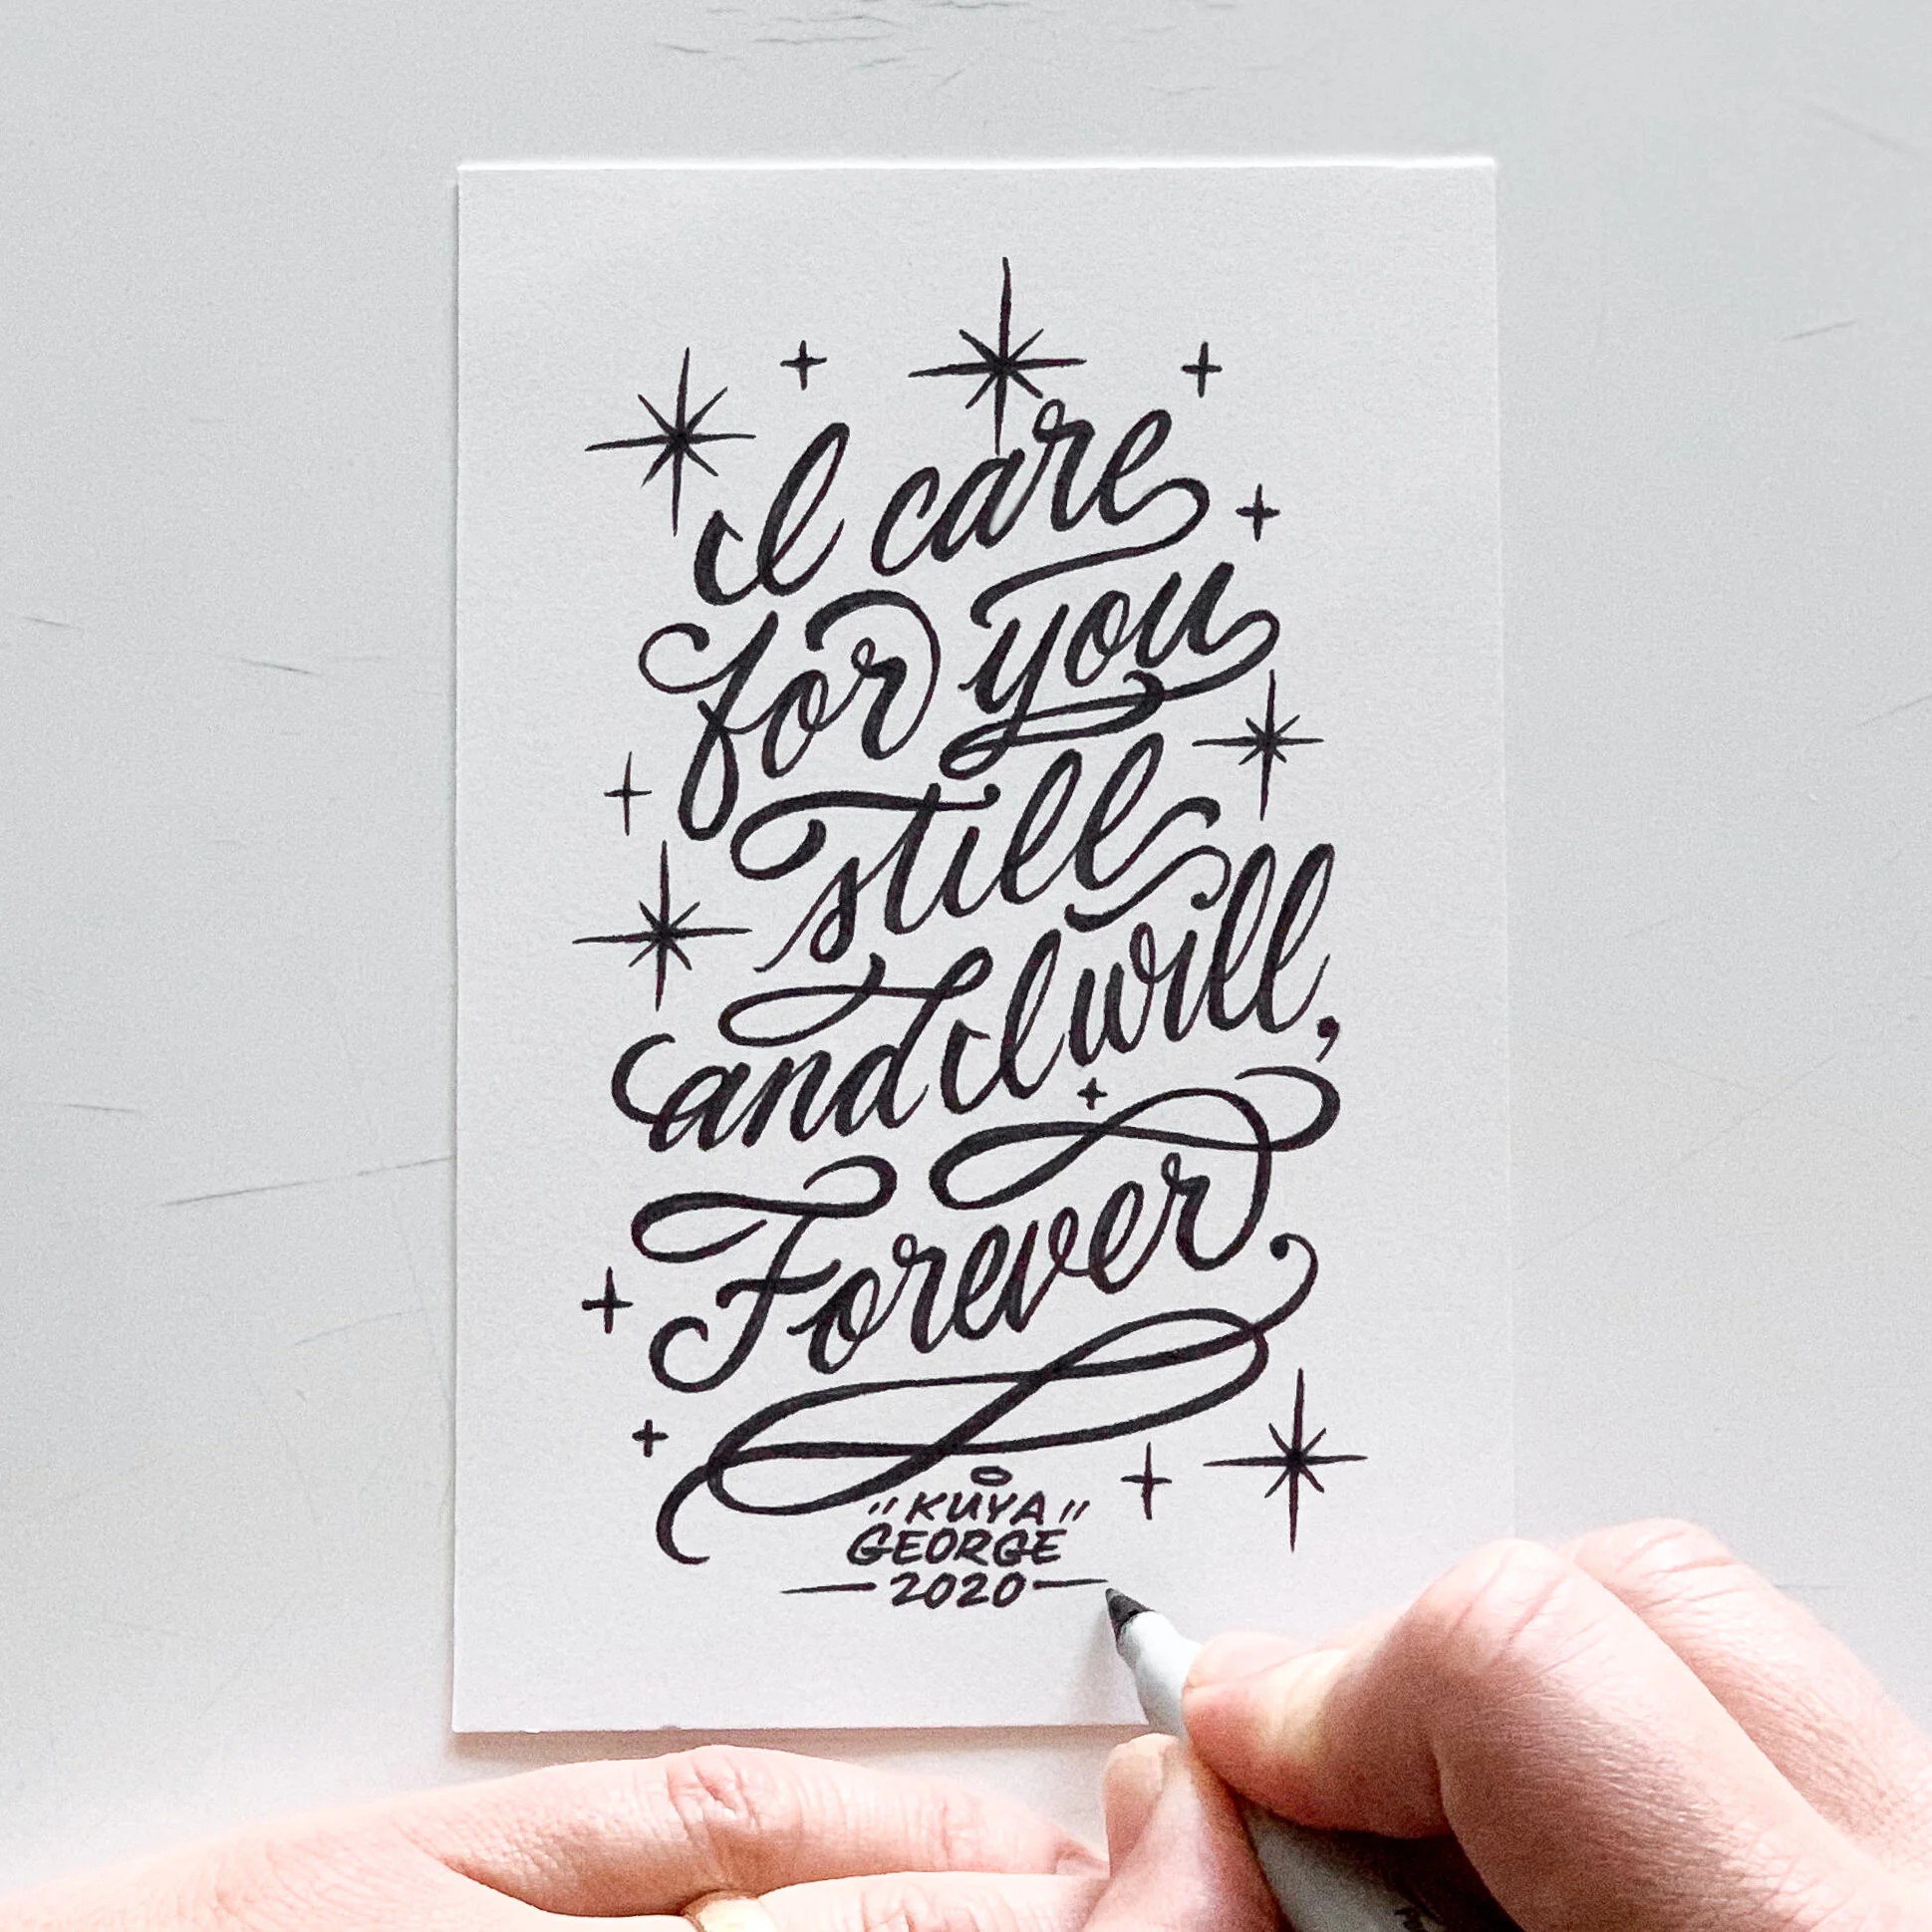 I care
for you
still
and I will,
Forever
"KUYA"
GEORGE
—2020—